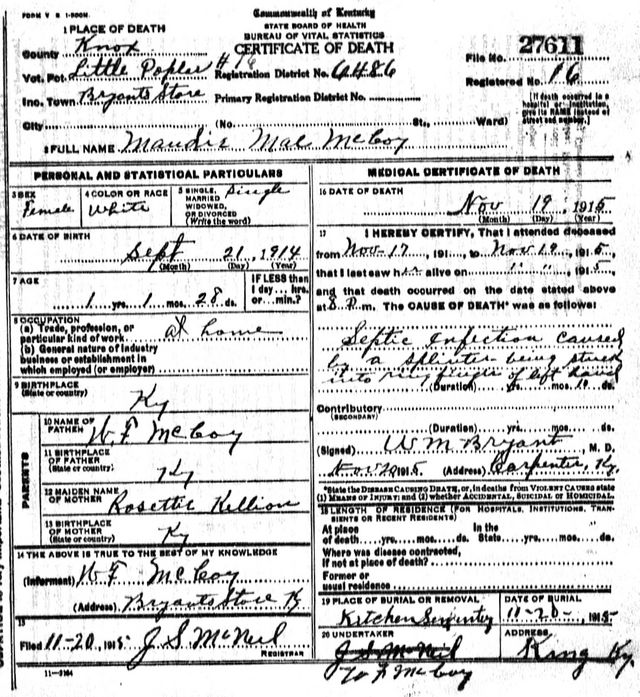 FORM V S 1-500M.
Commonwealth of Kentucky
STATE BOARD OF HEALTH
BUREAU OF VITAL STATISTICS
CERTIFICATE OF DEATH
1 PLACE OF DEATH
County Knox
Vot. Pct. Little Poplar #16
Registration District No. 6486
File No. 27611
Inc. Town Bryants Store
Primary Registration District No.
Registered No. 16
City (No. St., Ward)
[If death occurred in a hospital or institution, give its NAME instead of street and number.]
2 FULL NAME Maudie Mae McCoy
PERSONAL AND STATISTICAL PARTICULARS
3 SEX
Female
4 COLOR OR RACE
White
5 SINGLE, MARRIED WIDOWED, OR DIVORCED (Write the word)
Single
6 DATE OF BIRTH
Sept 21, 1914
(Month) (Day) (Year)
7 AGE
1 yrs. 1 mos. 28 ds.
IF LESS than 1 day... hrs. or min.?
8 OCCUPATION
(a) Trade, profession, or particular kind of work at home
(b) General nature of industry business or establishment in which employed (or employer)
9 BIRTHPLACE
(State or country) Ky
PARENTS
10 NAME OF FATHER W. F. McCoy
11 BIRTHPLACE OF FATHER
(State or country) Ky
12 MAIDEN NAME OF MOTHER Rosettie
13 BIRTHPLACE OF MOTHER
(State or country) Ky
14 THE ABOVE IS TRUE TO THE BEST OF MY KNOWLEDGE
(Informant) W. F. McCoy
(Address) Bryants Store K
15
Filed 11-20, 1915 J. S. McNeil
REGISTRAR
11-3184
MEDICAL CERTIFICATE OF DEATH
16 DATE OF DEATH
Nov 19, 1915
(Month) (Day) (Year)
17 I HEREBY CERTIFY, That I attended deceased
from Nov-17, 191, to Nov 19, 1915,
that I last saw her alive on " " ", 1915,
and that death occurred on the date stated above
at 8 P. m. The CAUSE OF DEATH* was as follows:
Septic Infection caused
by a splinter being stuck
into ring finger of left hand
(Duration) yrs. mos. 10 ds.
Contributory
(SECONDARY)
(Duration) yrs. mos. ds.
(Signed) W M Bryant, M. D.
Nov. 20, 1915 (Address) Carpenter, Ky.
*State the DISEASE CAUSING DEATH, or, in deaths from VIOLENT CAUSES state (1) MEANS OF INJURY; and (2) whether ACCIDENTAL, SUICIDAL or HOMICIDAL.
18 LENGTH OF RESIDENCE (FOR HOSPITALS, INSTITUTIONS, TRANSIENTS OR RECENT RESIDENTS)
At place of death yrs. mos. ds. In the State yrs. mos. ds.
Where was disease contracted, If not at place of death?
Former or usual residence
19 PLACE OF BURIAL OR REMOVAL
DATE OF BURIAL
Kitchen
11-20-, 1915
20 UNDERTAKER
J. S. McNeil
W F McCoy
ADDRESS
King Ky